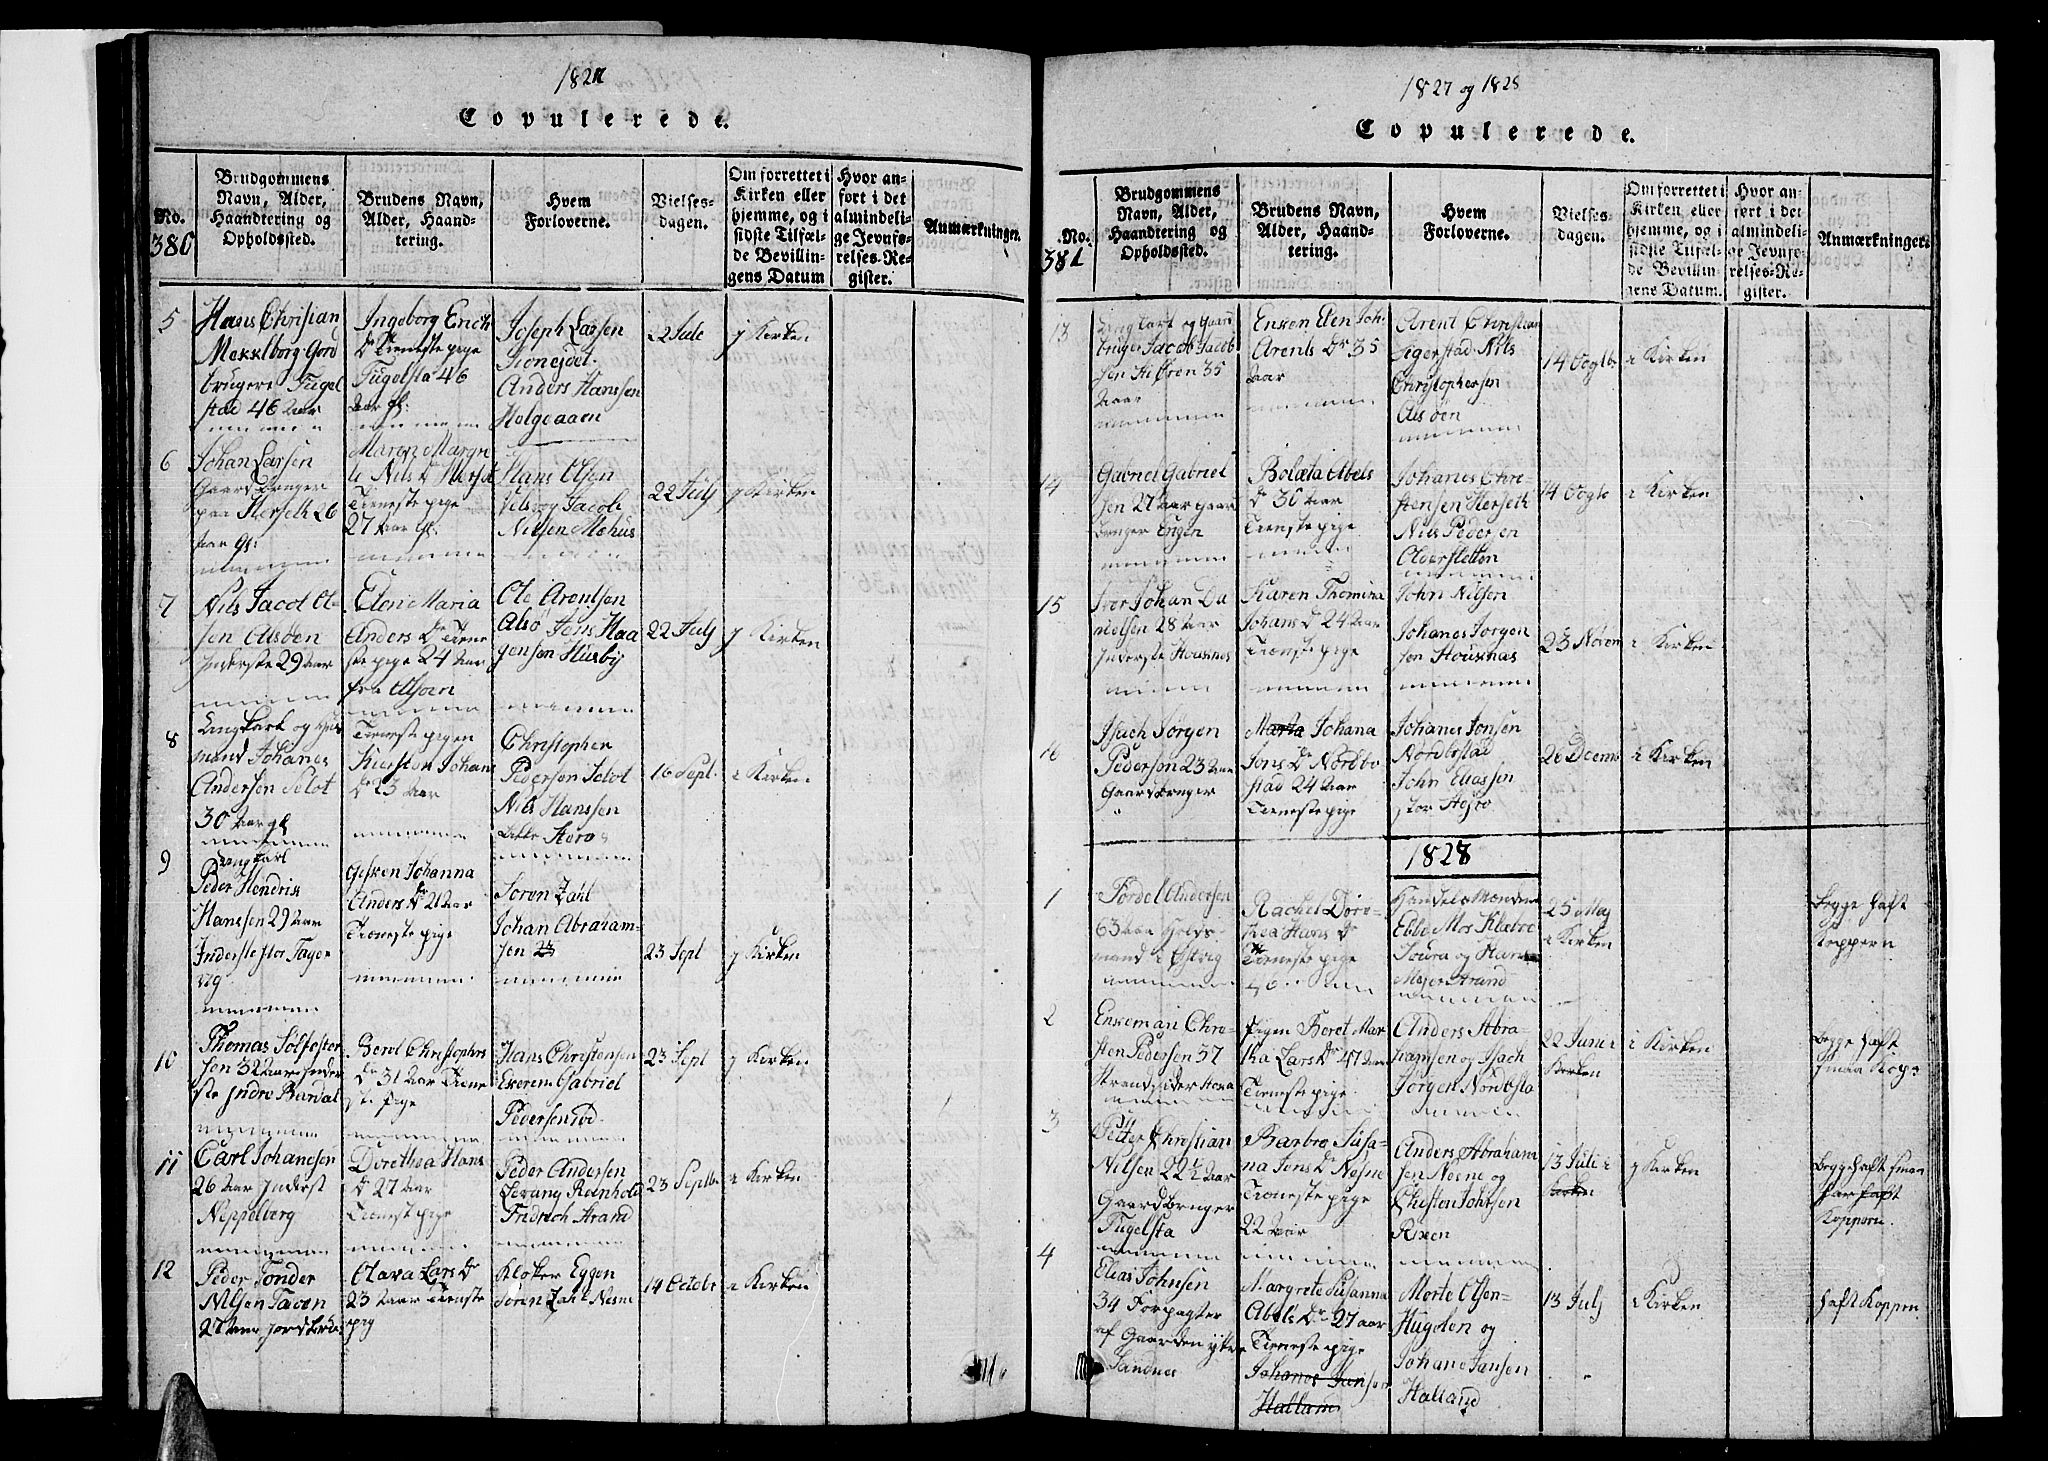 1827
Copulerede.
No.
380
Brudgommens
Navn, Alder,
Haandtering og
Opholdssted.
Brudens Navn,
Alder, Haand-
tering.
Hvem
Forloverne.
Vielses-
dagen.
Om forrettet i
Kirken eller
hjemme, og i
sidste Tilfæl-
de Bevillin-
gens Datum
Hvor an-
ført i det
almindeli-
ge Jevnfø-
relses-Re-
gister.
Anmærkninger.
5
Hans Christian
Mekelborg Gord
bruger Tugel
stad 46 Aar
Ingeborg Erich
Dr Tieneste pige
Tugelsta 46
Aar gl:
Joseph Larsen
Anders Hanssen
Holgeaaen
22 Jule
j Kirken
6
Johan Larsen
Gaardbruger
paa Herseth 26
Aar gl:
Maren Margre
te Nils Dr Herset
Tieneste pige
27 Aar gl:
Hans Olsen
Velsvog Jacob
Nilsen Mehus
22 Julj
j Kirken
7
Nils Jacob Ol-
sen Alsøen
Inderste 29 Aar
Elen Maria
Anders Dr Tiene
ste pige 24 Aar
fra Alsøen
Ole Arentsen
Alsø Jens Haa
gensen Husby
22 Julj
j Kirken
8
Ungkarl og Huus
mand Johanes
Andersen Selot
30 Aar gl
Tieneste pigen
Kiersten Johans
Dr 23 Aar
Christopher
Pedersen Selot
Nils Hanssen
Lille Herø
16 Sept.
i Kirken
9
Ungkarl
Peder Hendrik
Hanssen 29 Aar
Inderste stor Tagen
vig
Gesken Johanna
Anders Dr 21 Aar
Tieneste pige
Søren Zahl
Johan Abraham-
sen
23 Sept
j Kirken
10
Thomas Sølfester
sen 32 Aar Inder
ste Indre Bardal
Beret Christophers
Dr 31 Aar Tiene
ste pige
Hans Christensen
Gabriel
Pedersen
23 Sept
j Kirken
11
Carl Johanesen
26 Aar Inderst
Neppelberg
Dorethea Hans
Dr 27 Aar
Tieneste pige
Peder Andersen
Levang Reinhold
Fridrich Strand
23 Septbr
i Kirken
12
Peder Tønder
Nilsen Taven
27 Aar Jordbrug
Clara Lars Dr
23 Aar Tieneste
pig
Kloker Eggen
Søren Zahl Nesne
14 Octobr
i Kirken
1827 og 1828
Copulerede.
No.
381
Brudgommens
Navn, Alder,
Haandtering og
Opholdssted.
Brudens Navn,
Alder, Haand-
tering.
Hvem
Forloverne.
Vielses-
dagen.
Om forrettet i
Kirken eller
hjemme, og i
sidste Tilfæl-
de Bevillin-
gens Datum.
Hvor an-
ført i det
almindeli-
ge Jevnfø-
relses-Re-
gister.
Anmærkninger.
13
Ungkarl og Gaard
bruger Jacob Jacob
sen 35
Aar
Enken Elen Joh-
Arents Dr 35
Aar
Arent Christian
Segerstad Nils
Christophersen
Alsøen
i Kirken
14
Gabriel Gabriel
sen 27 Aar Gaard
bruger Engen
Bolæta Abels
Dr 30 Aar
Tieneste pige
Johanes Chre-
stensen Herseth
Nils Pedersen
Oldersletten
i Kirken
15
Iver Johan Da
nielsen 28 Aar
Inderste Housnes
Karen Thomina
Johans Dr 24 Aar
Tieneste pige
John Nilsen
Johanes Jørgen
sen Housnæs
23 Novem
i Kirken
16
Isach Jørgen
Pedersen 23 Aar
Gaardbruger
Marta Johana
Jons Dr Nordbo
stad 24 Aar
Tieneste pige
Johanes Jonsen
Nordbostad
John Eliassen
stor Herø
26 Decemb
i Kirken
1828
1
Tordel Andersen
63 Aar
mand i
Rachel Doro-
thea Hans Dr
Tieneste pige
46
Handelsmænden
Ebbe Mor Klæbo
Soura og Hans
Meyer Strand
25 Maj
i Kirken
begge haft
Koppern
2
Enkeman Chre-
sten Pedersen 57
Strandsider
Pigen Beret Mar
tha Lars Dr 47 Aar
Tieneste pige
Anders Abra
hamsen og Isach
Jørgen Nordbosta
22 Juni i
Kirken
i Kirken
begge haft
smaa Kop
3
Petter Christian
Nilsen 22½ Aar
Gaardbruger
Tugelsta
Barbro Susa-
na Jons Dr Nesne
Tieneste pige
22 Aar
Anders Abraham
sen Nesne og
Christen Johnsen
13 Juli i
Kirken
j Kirken
begge haft smaa
har haft
Koppern.
4
Elias Johnsen
34 Forpagter
af Gaarden ytre
Sandnes
Margrete Susanna
Abels Dr 27 Aar
Tieneste pige
Johanes Jansen
Halland
Morte Olsen
Hugelen og
Johanes Jansen
Halland
13 Julj
i Kirken
haft Koppen